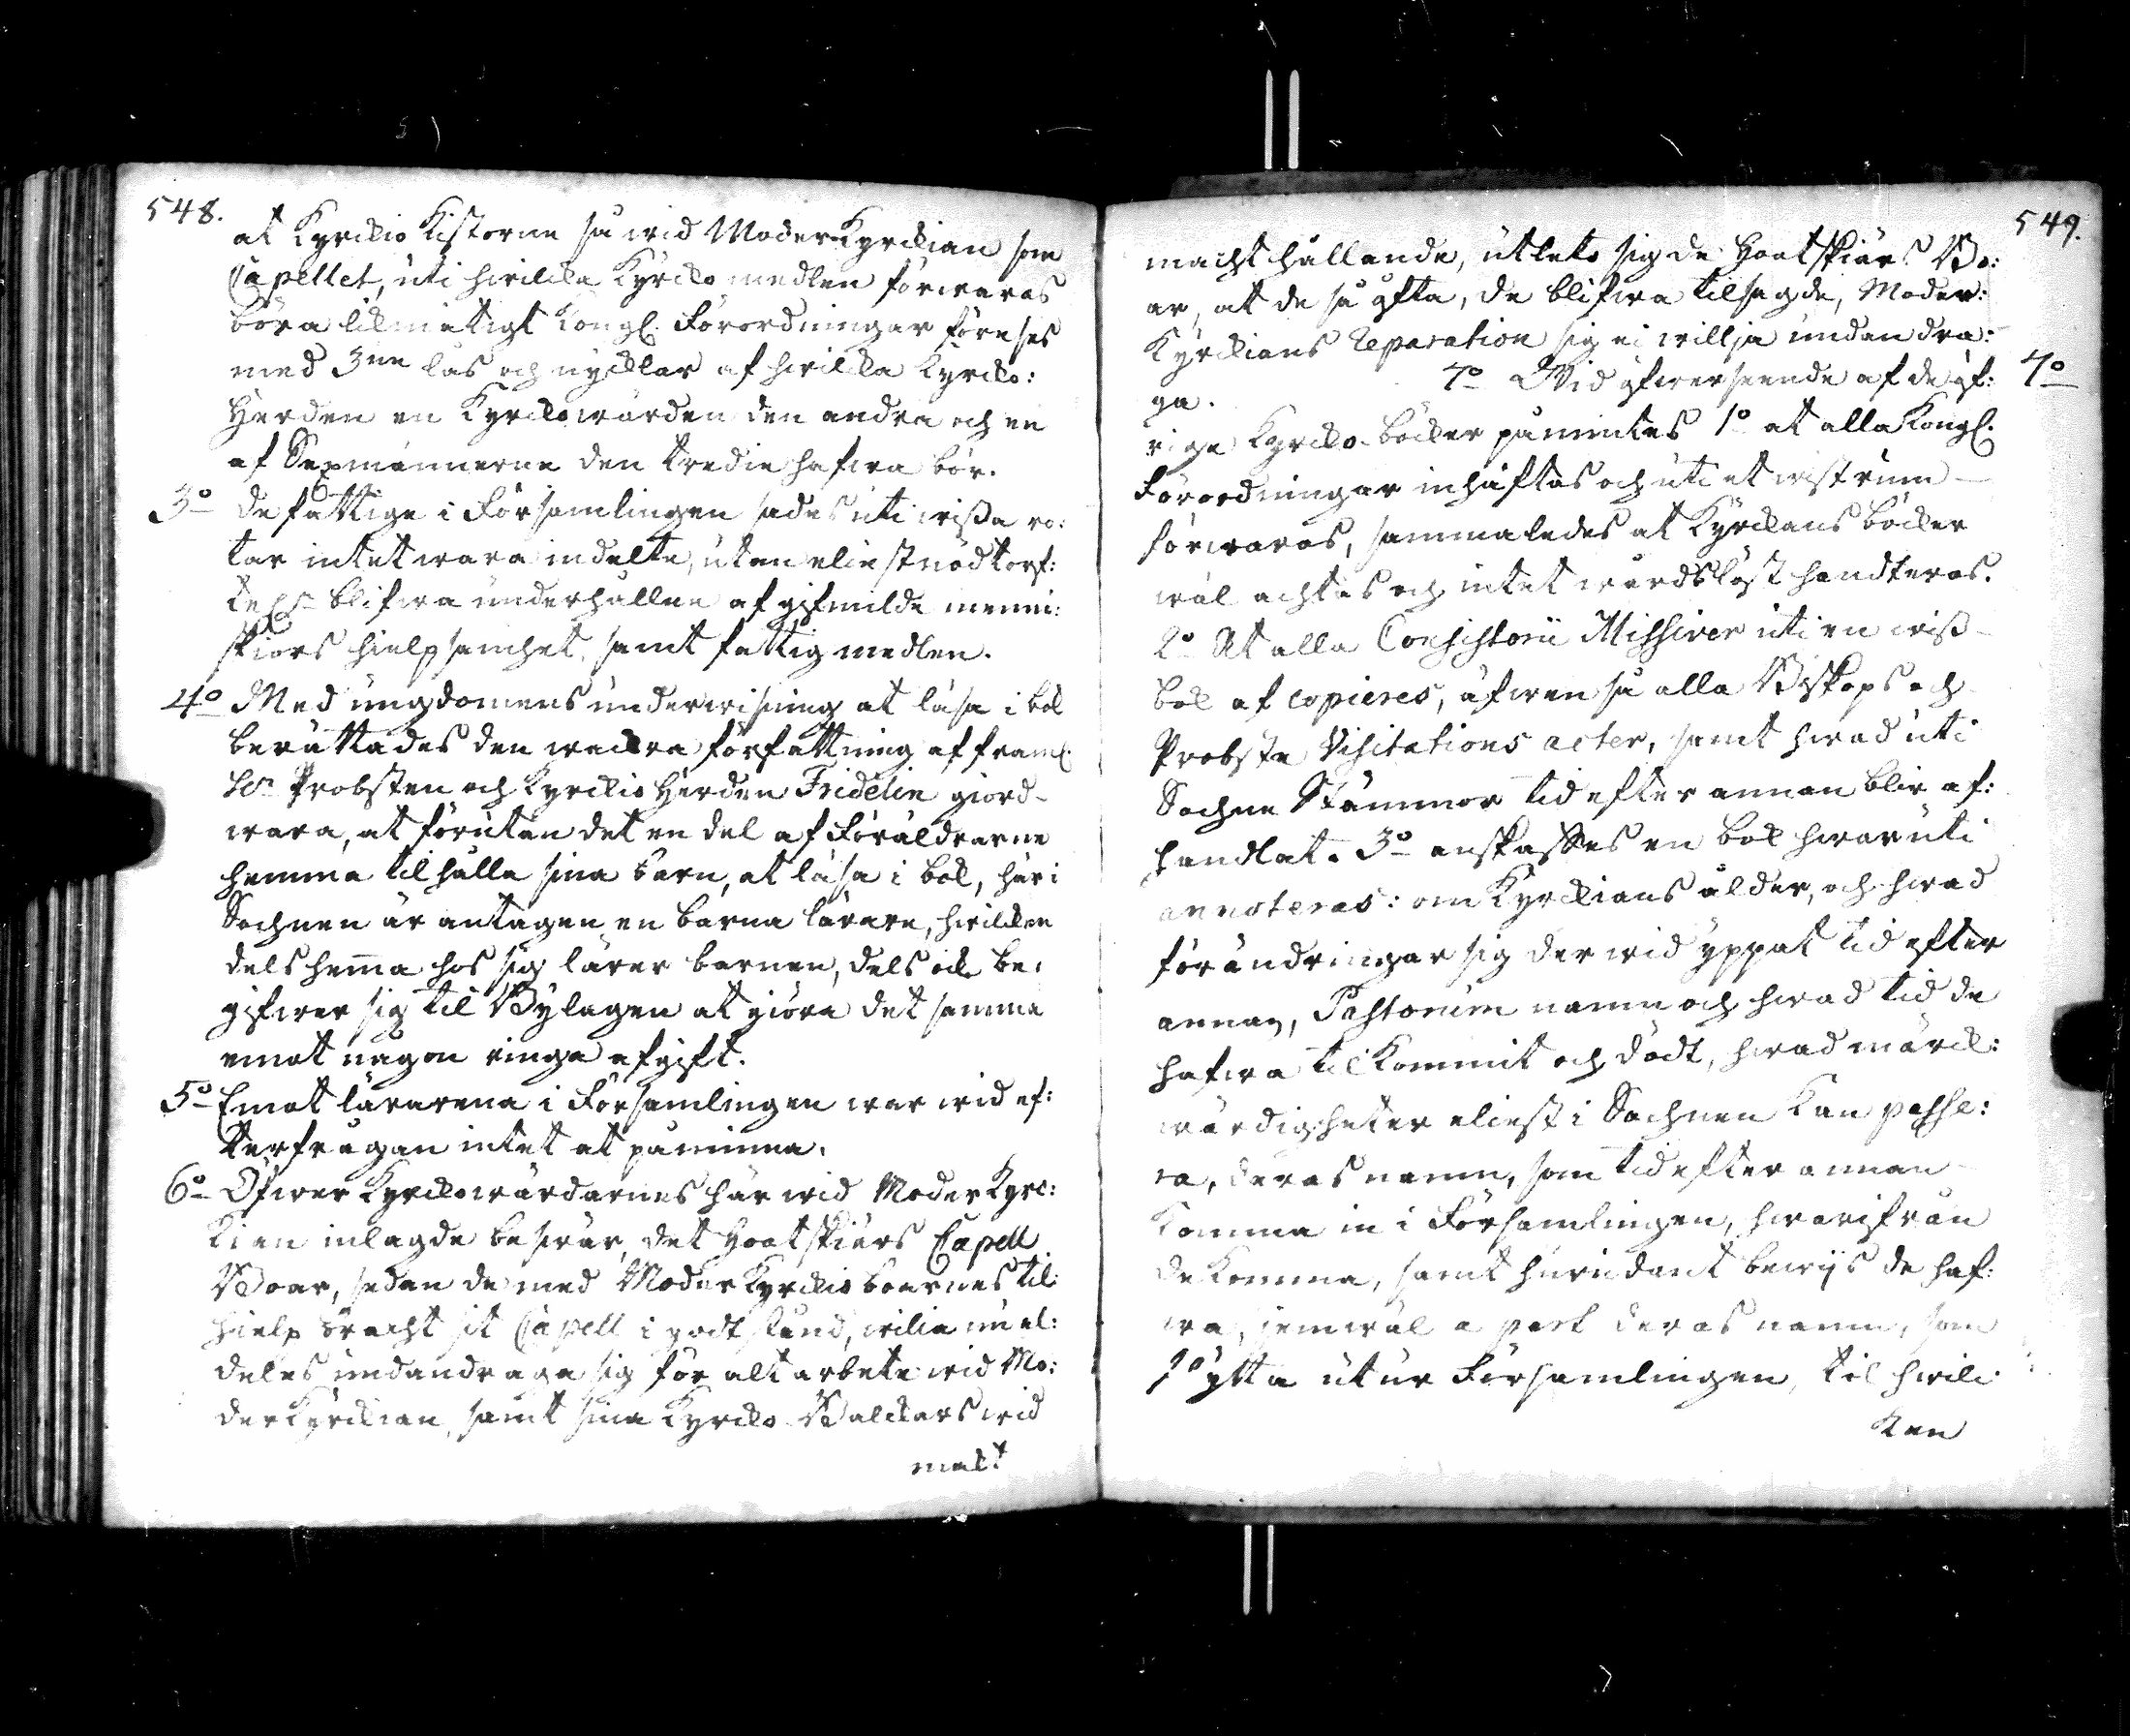 548.
at Kyrckio Kistorne så wid ModerKyrckian som
Capellet, uti hwilcka Kyrcko medlen förwaras
böra likmätigt Kongl. Förordningar förses
med 3ne lås och nycklar af hwilcka Kyrcko:
Herden en Kyrckowärden den andra och en
af Sexmännerne den tredie hafwa bör.
3o De fattige i Församlingen sades uti wißa ro:
tar intet wara indelte, utan eliest nödtorf:
teln blifwa underhållne af gifmilde menni:
skiors hielpsamhet, samt fattig medlen.
4o Med ungdomens underwisning at läsa i bok
berättades den wackra författning af framl.
Hr Probsten och Kyrckio Herden Fridelin giord
wara, at förutan det en del af Föräldrarne
hemma tilhålla sina barn, at läsa i bok, här i
Sochnen är antagen en barna lärare, hwilcken
dels hema hos sig lärer barnen, dels ock be:
gifwer sig til Bylagen at giöra det samma
emot någon ringa afgift.
5o Emot lärarena i Församlingen war wid ef:
terfrågan intet at påminna.
6o Öfwer Kyrckowärdarnes här wid Moder Kyrc:
kian inlagde beswär, det Houtskiärs Capell
Boar, sedan de med Moder Kyrckio boarnes til
hielp bracht sit Capell i godt stånd, wilia nu al:
deles undandraga sig för alt arbete wid Mo:
der Kyrckian, samt sina Kyrcko Balckars wid
mackt
549.
macht hållande, utleto sig de Houtskiärs Bo:
ar, at de så ofta, de blifwa tilsagde, Moder:
Kyrckians Reparation sig ei willja undan dra:
ga. 7o Wid öfwerseende af de öf: 7o
rige Kyrcko-böcker påmintes 1o at alla Kongl.
Förordningar inhäftas och uti et wist rum
förwaras, sammaledes at Kyrckans böcker
wäl achtas och intet wårdslöst handteras.
2o At alla Consistorii Missiver uti en wiß
bok af copieres, äfwen så alla Biskops och
Probste Visitations acter, samt hwad uti
Sochne Stämmor tid efter annan blir af:
handlat. 3o anskaffes en bok hwaruti
annoteras: om Kyrckians ålder, och hwad
förändringar sig der wid yppat tid efter
annan, Pastorum namn och hwad tid de
hafwa tilkommit och dödt, hwad märck:
wärdigheter eliest i Sochnen kan passe:
ra, deras namn, som tid efter annan
komma in i Församlingen, hwarifrån
de komma, samt hurudant bewijs de haf:
wa, jemwäl a part deras namn, som
flytta utur Församlingen, til hwilc
ken